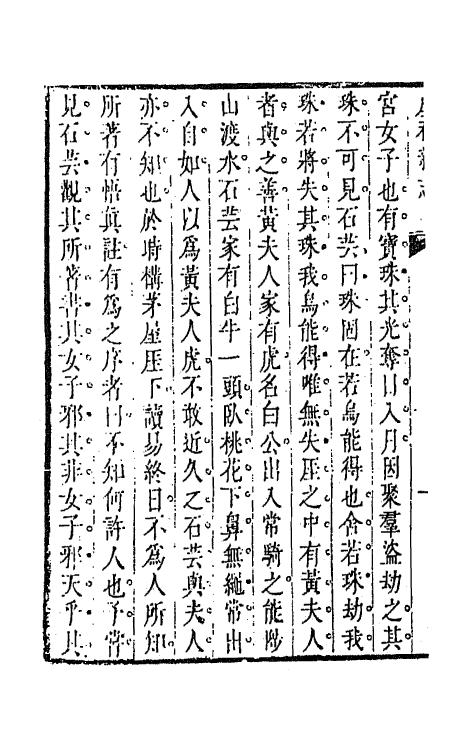 宮女子也有寶珠其光奪日入月因聚羣盜劫之其
珠不可見石芸曰珠固在若烏能得也舍若珠劫我
珠若將失其珠我烏能得唯無失厓之中有黃夫人
者與之善黃夫人家有虎名白公出入常騎之能陟
山渡水石芸家有白牛一頭臥桃花下鼻無繩常出
入自如人以爲黃夫人虎不敢近久之石芸與夫人
亦不知也於時構茅屋厓下讀易終日不爲人所知
所著有悟眞註有爲之序者曰不知何許人也予嘗
見石芸觀其所著書其女子邪其非女子邪天乎其